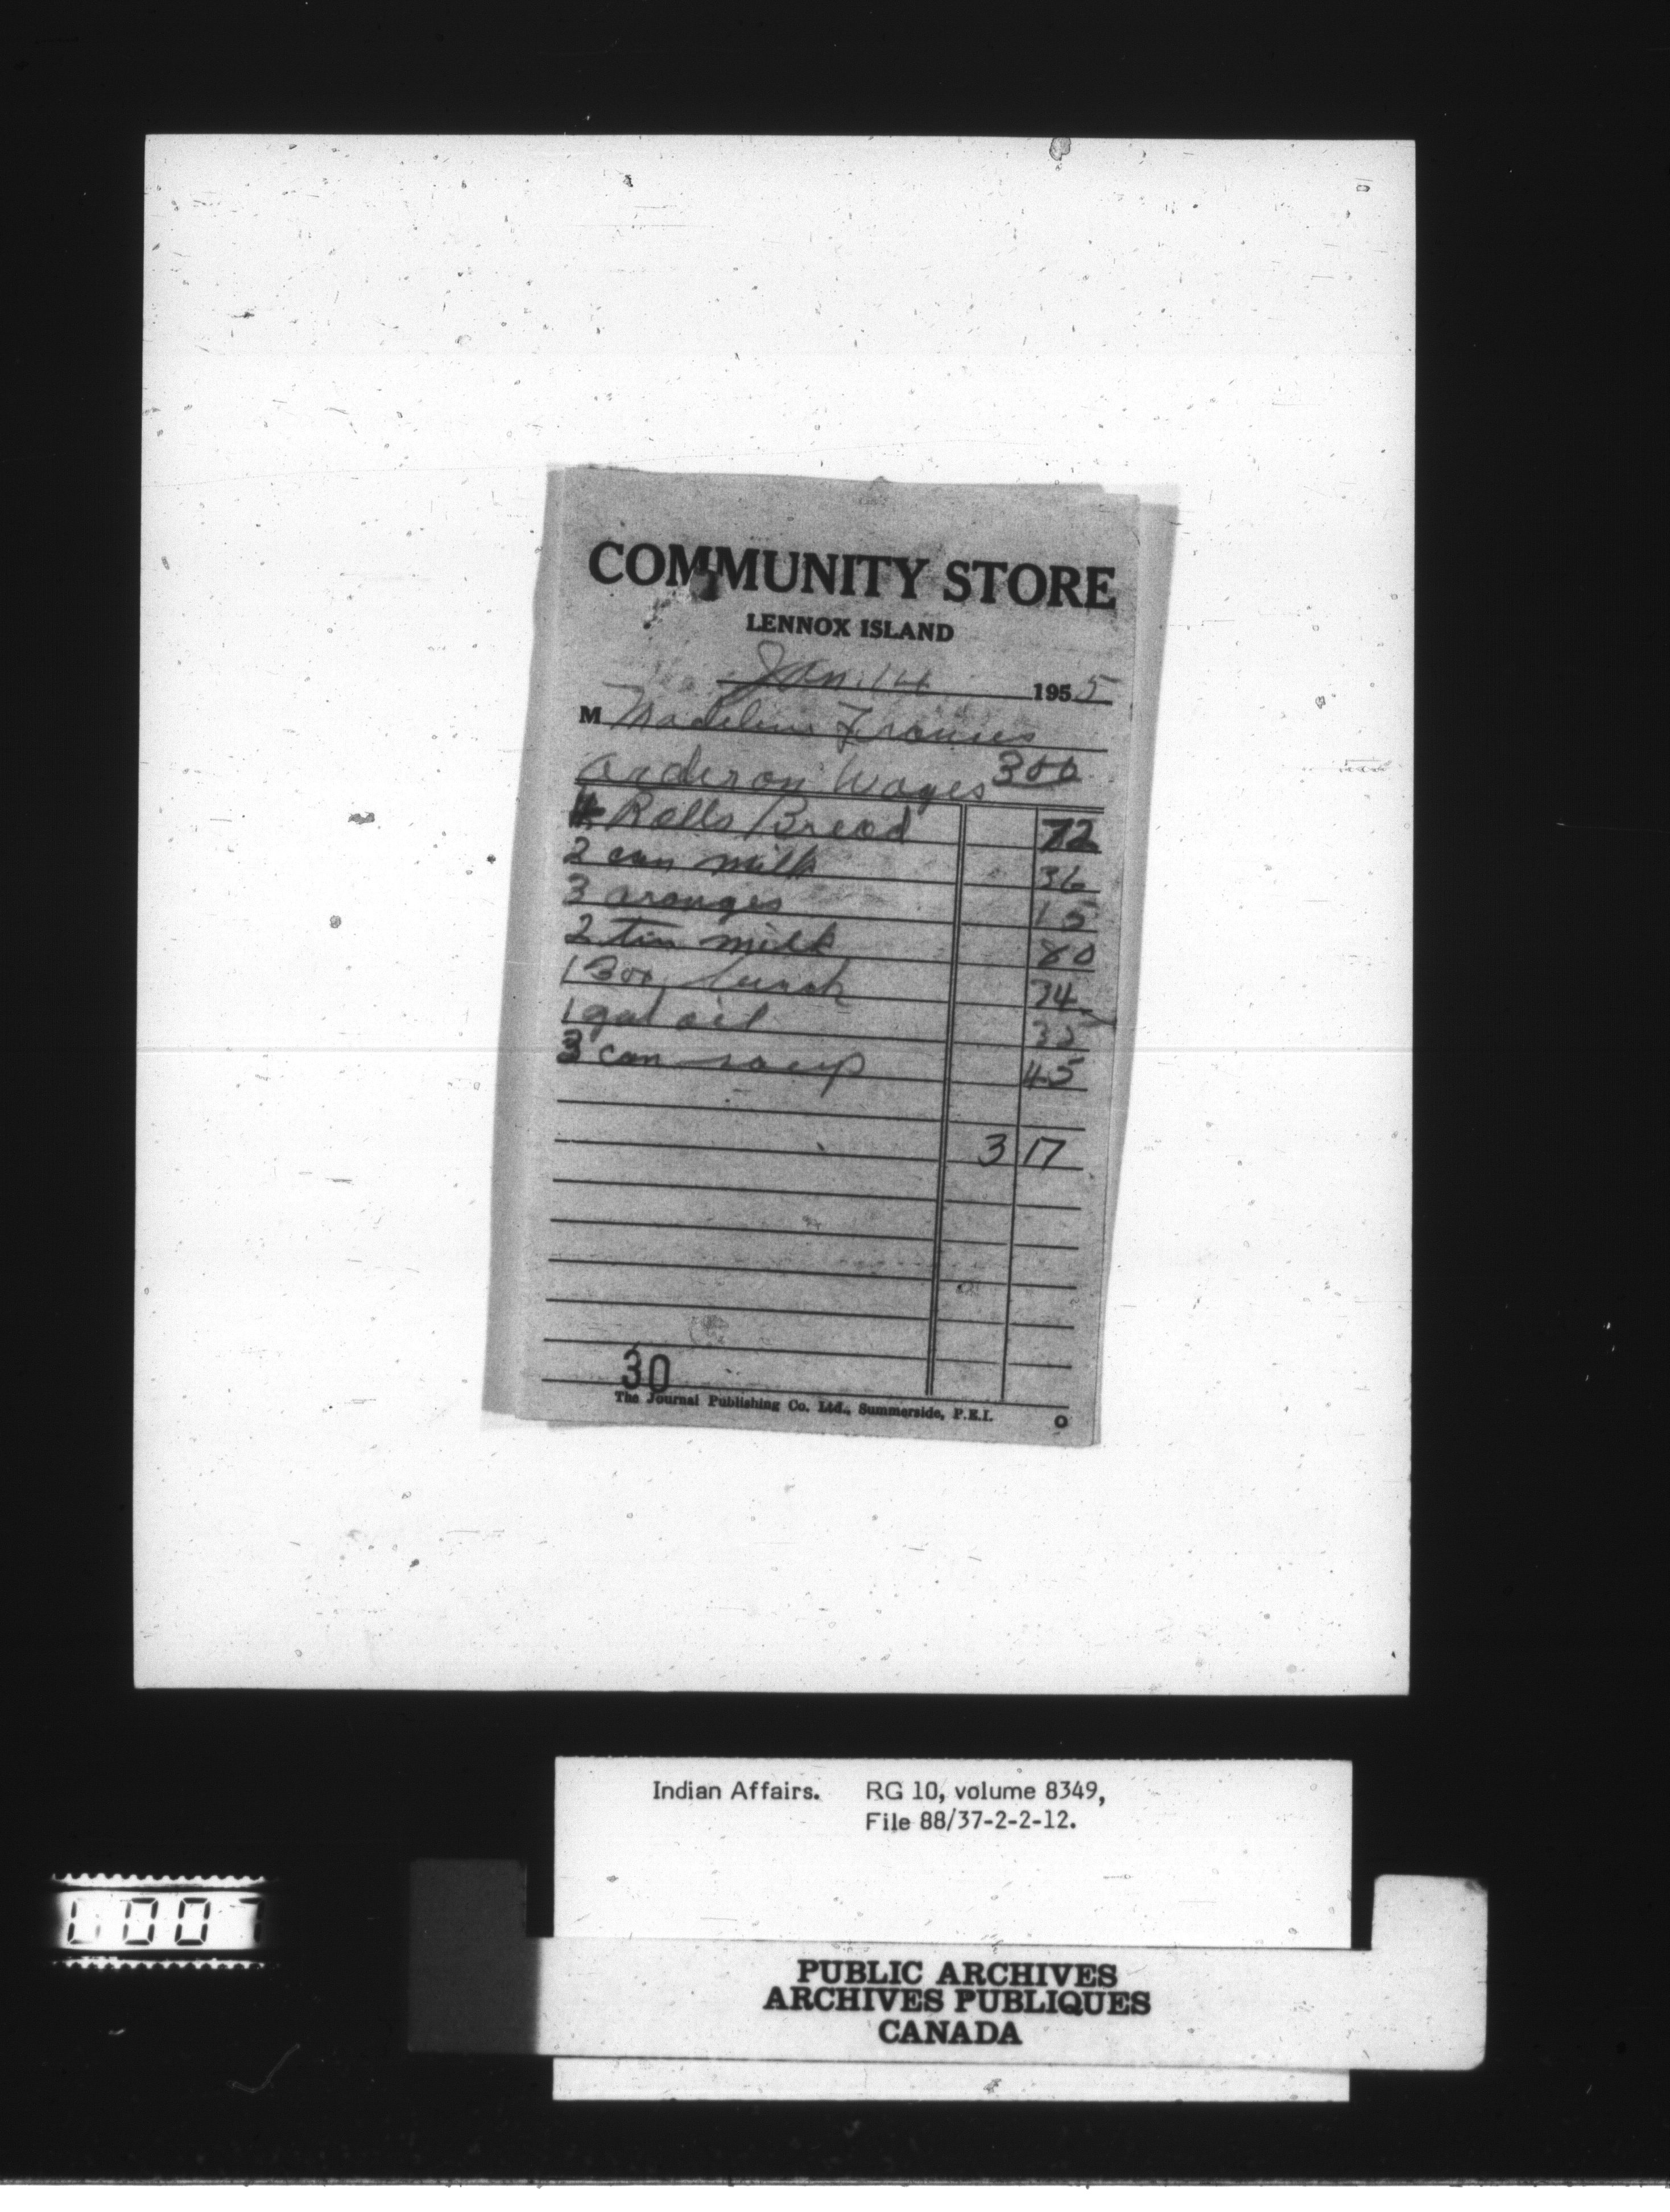 COMMUNITY STORE
LENNOX ISLAND
Jan. 14 1955
M Madeline Francis
order on Wages 300
4 Rolls Bread 72
2 can milk 36
3 oranges 15
2 tin milk 80
1 34
1 gal oil 35
3 can soup 45
3 17
30
The Journal Publishing Co. Ltd., Summerside, P.E.I.
Indian Affairs. RG 10, volume 8349,
File 88/37-2-2-12.
PUBLIC ARCHIVES
ARCHIVES PUBLIQUES
CANADA